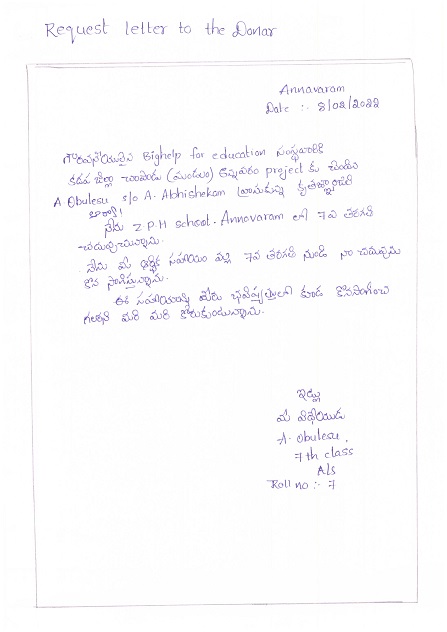 Request letter to the Donar
Annavaram
Date :- 8/02/2022
గౌరవనీయులైన Bighelp for education సంస్థవారికి
కడప జిల్లా చాపాడు (మండలం) అన్నవరం project కు చెందిన
A Obulesu s/o A. Abhishekam వ్రాయుచున్న కృతజ్ఞతాంజలి
నేను Z.P.H school. Annavaram లో 7వ తరగతి
చదువుచున్నాను.
నేను మీ ఆర్థిక సహాయం వల్ల 7వ తరగతి నుండి నా చదువును
కొన సాగిస్తున్నాను.
ఈ సహాయాన్ని మీరు భవిష్యత్తులో కూడ కొనసాగించ
గలరని మరి మరి కోరుకుంటున్నాను.
ఇట్లు
మీ విధేయుడు
A. Obulesu,
7th class
A/s
Roll no :- 7